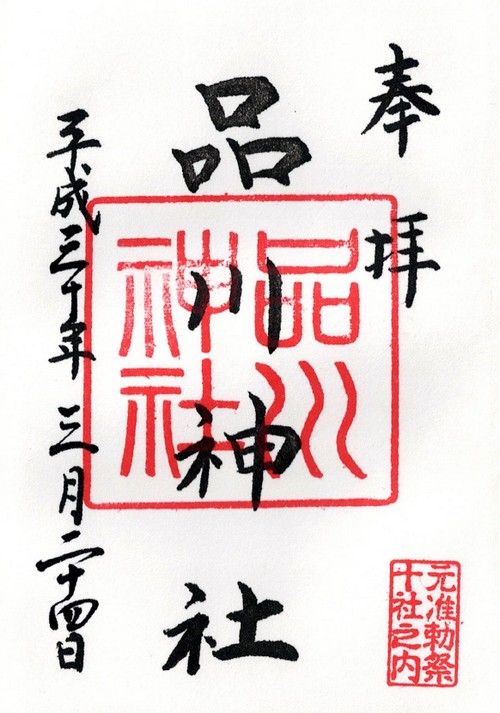 奉拝
品川神社
品川
神社
平成三十年三月二十四日
元准勅祭
十社之内